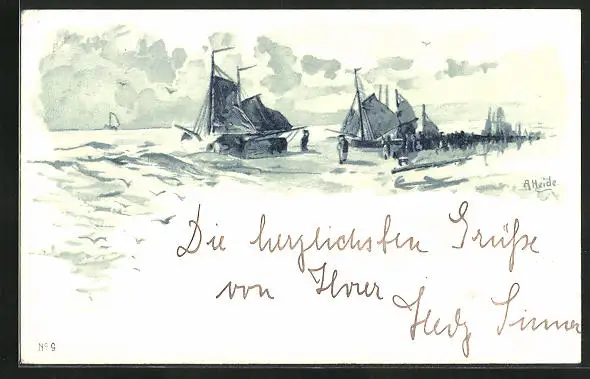 A Heide.
Die herzlichsten Grüße
von Ihrer
Hedy Sinner
No 9